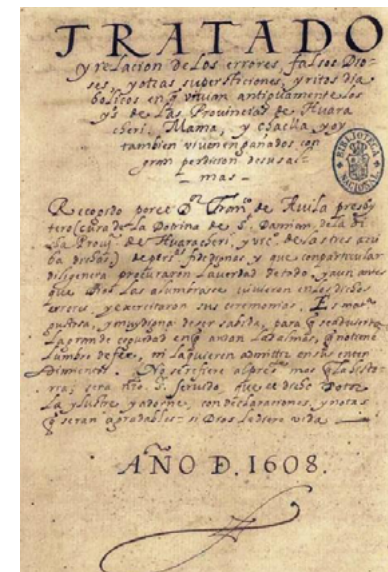 TRATADO
y relacion de los errores, falsos Dio-
ses, y otras supersticiones, y ritos dia
bolicos en q̃ viuian antiguamente los
yˢ de las Prouincias de Huara
cheri, Mama, y Chaclla, y oy
tambien viuen engañados con
gran perdicion de sus al-
-mas-
Recogido por el Dᵒʳ Franᶜᵒ de Auila presby
tero (cura de la Dotrina de S. Damian, de la dha
Prouᵃ de Huaracheri, y vicᵒ de las tres arri
ba dichas) de persᵃˢ fidedignas y que con particular
diligencia procuraron la verdad de todo, y aun antes
que Dios las alumbrase viuieron en los dichos
errores, y exercitaron sus ceremonias. Es matᵃ
gustosa, y muy digna de ser sabida, para q̃ se aduierta
la grande ceguedad en q̃ andan las almas, q̃ no tienē
lumbre de fee, ni la quieren admitir en sus enten
dimientᵒˢ. No se refiere al presᵗᵉ mas q̃ la histo
ria; sera nrõ. S. seruido, que el dicho Dotor
la ylustre y adorne, con declaraciones, y notas
q̃ seran agradables- si Dios le diere vida
AÑO D. 1608.
BIBLIOTECA
NACIONAL